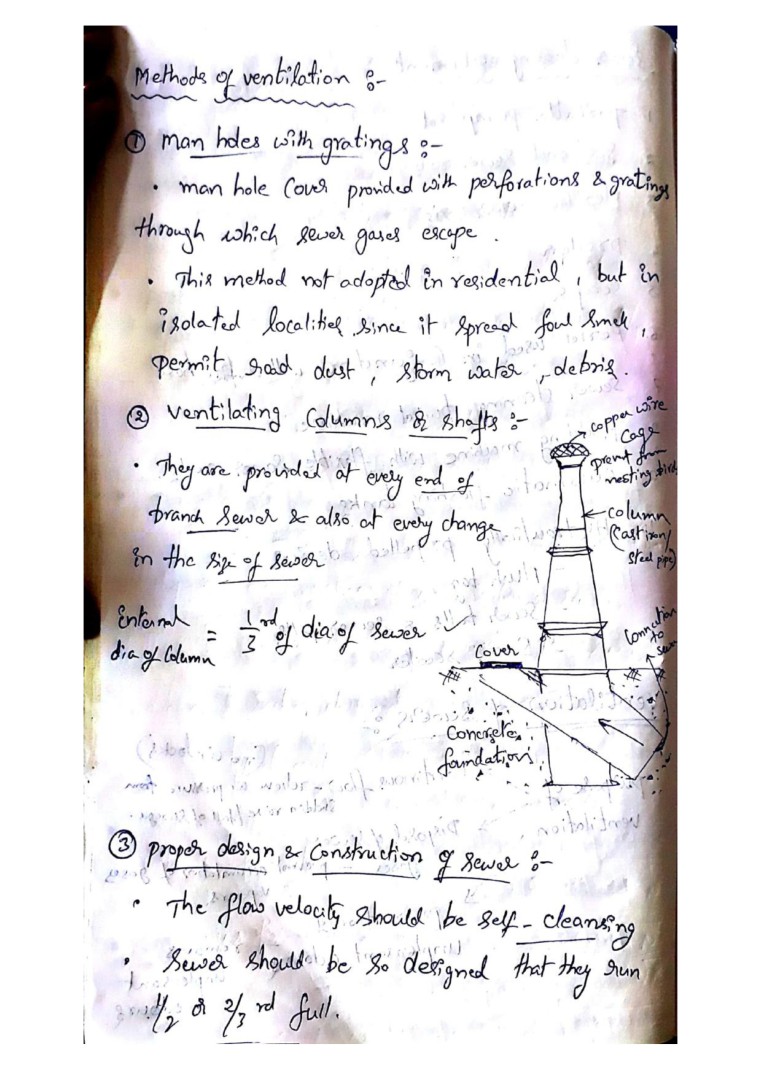 Methods of ventilation :-
① man holes with gratings :-
• man hole cover provided with perforations & gratings
through which sewer gases escape.
• This method not adopted in residential, but in
isolated localities since it spread foul smell,
permit road, dust, storm water, debris.
② Ventilating Columns & Shafts :-
• They are provided at every end of
branch sewer & also at every change
in the size of sewer
Internal dia of Column = 1/3 rd of dia of sewer
copper wire
cage
prevent from
nesting birds
column
(Cast iron/
Steel pipe)
Connection
to
sewer
Cover
Concrete
foundation
③ proper design & Construction of sewer :-
• The flow velocity should be self-cleansing
• Sewer should be so designed that they run
1/2 or 2/3 rd full.